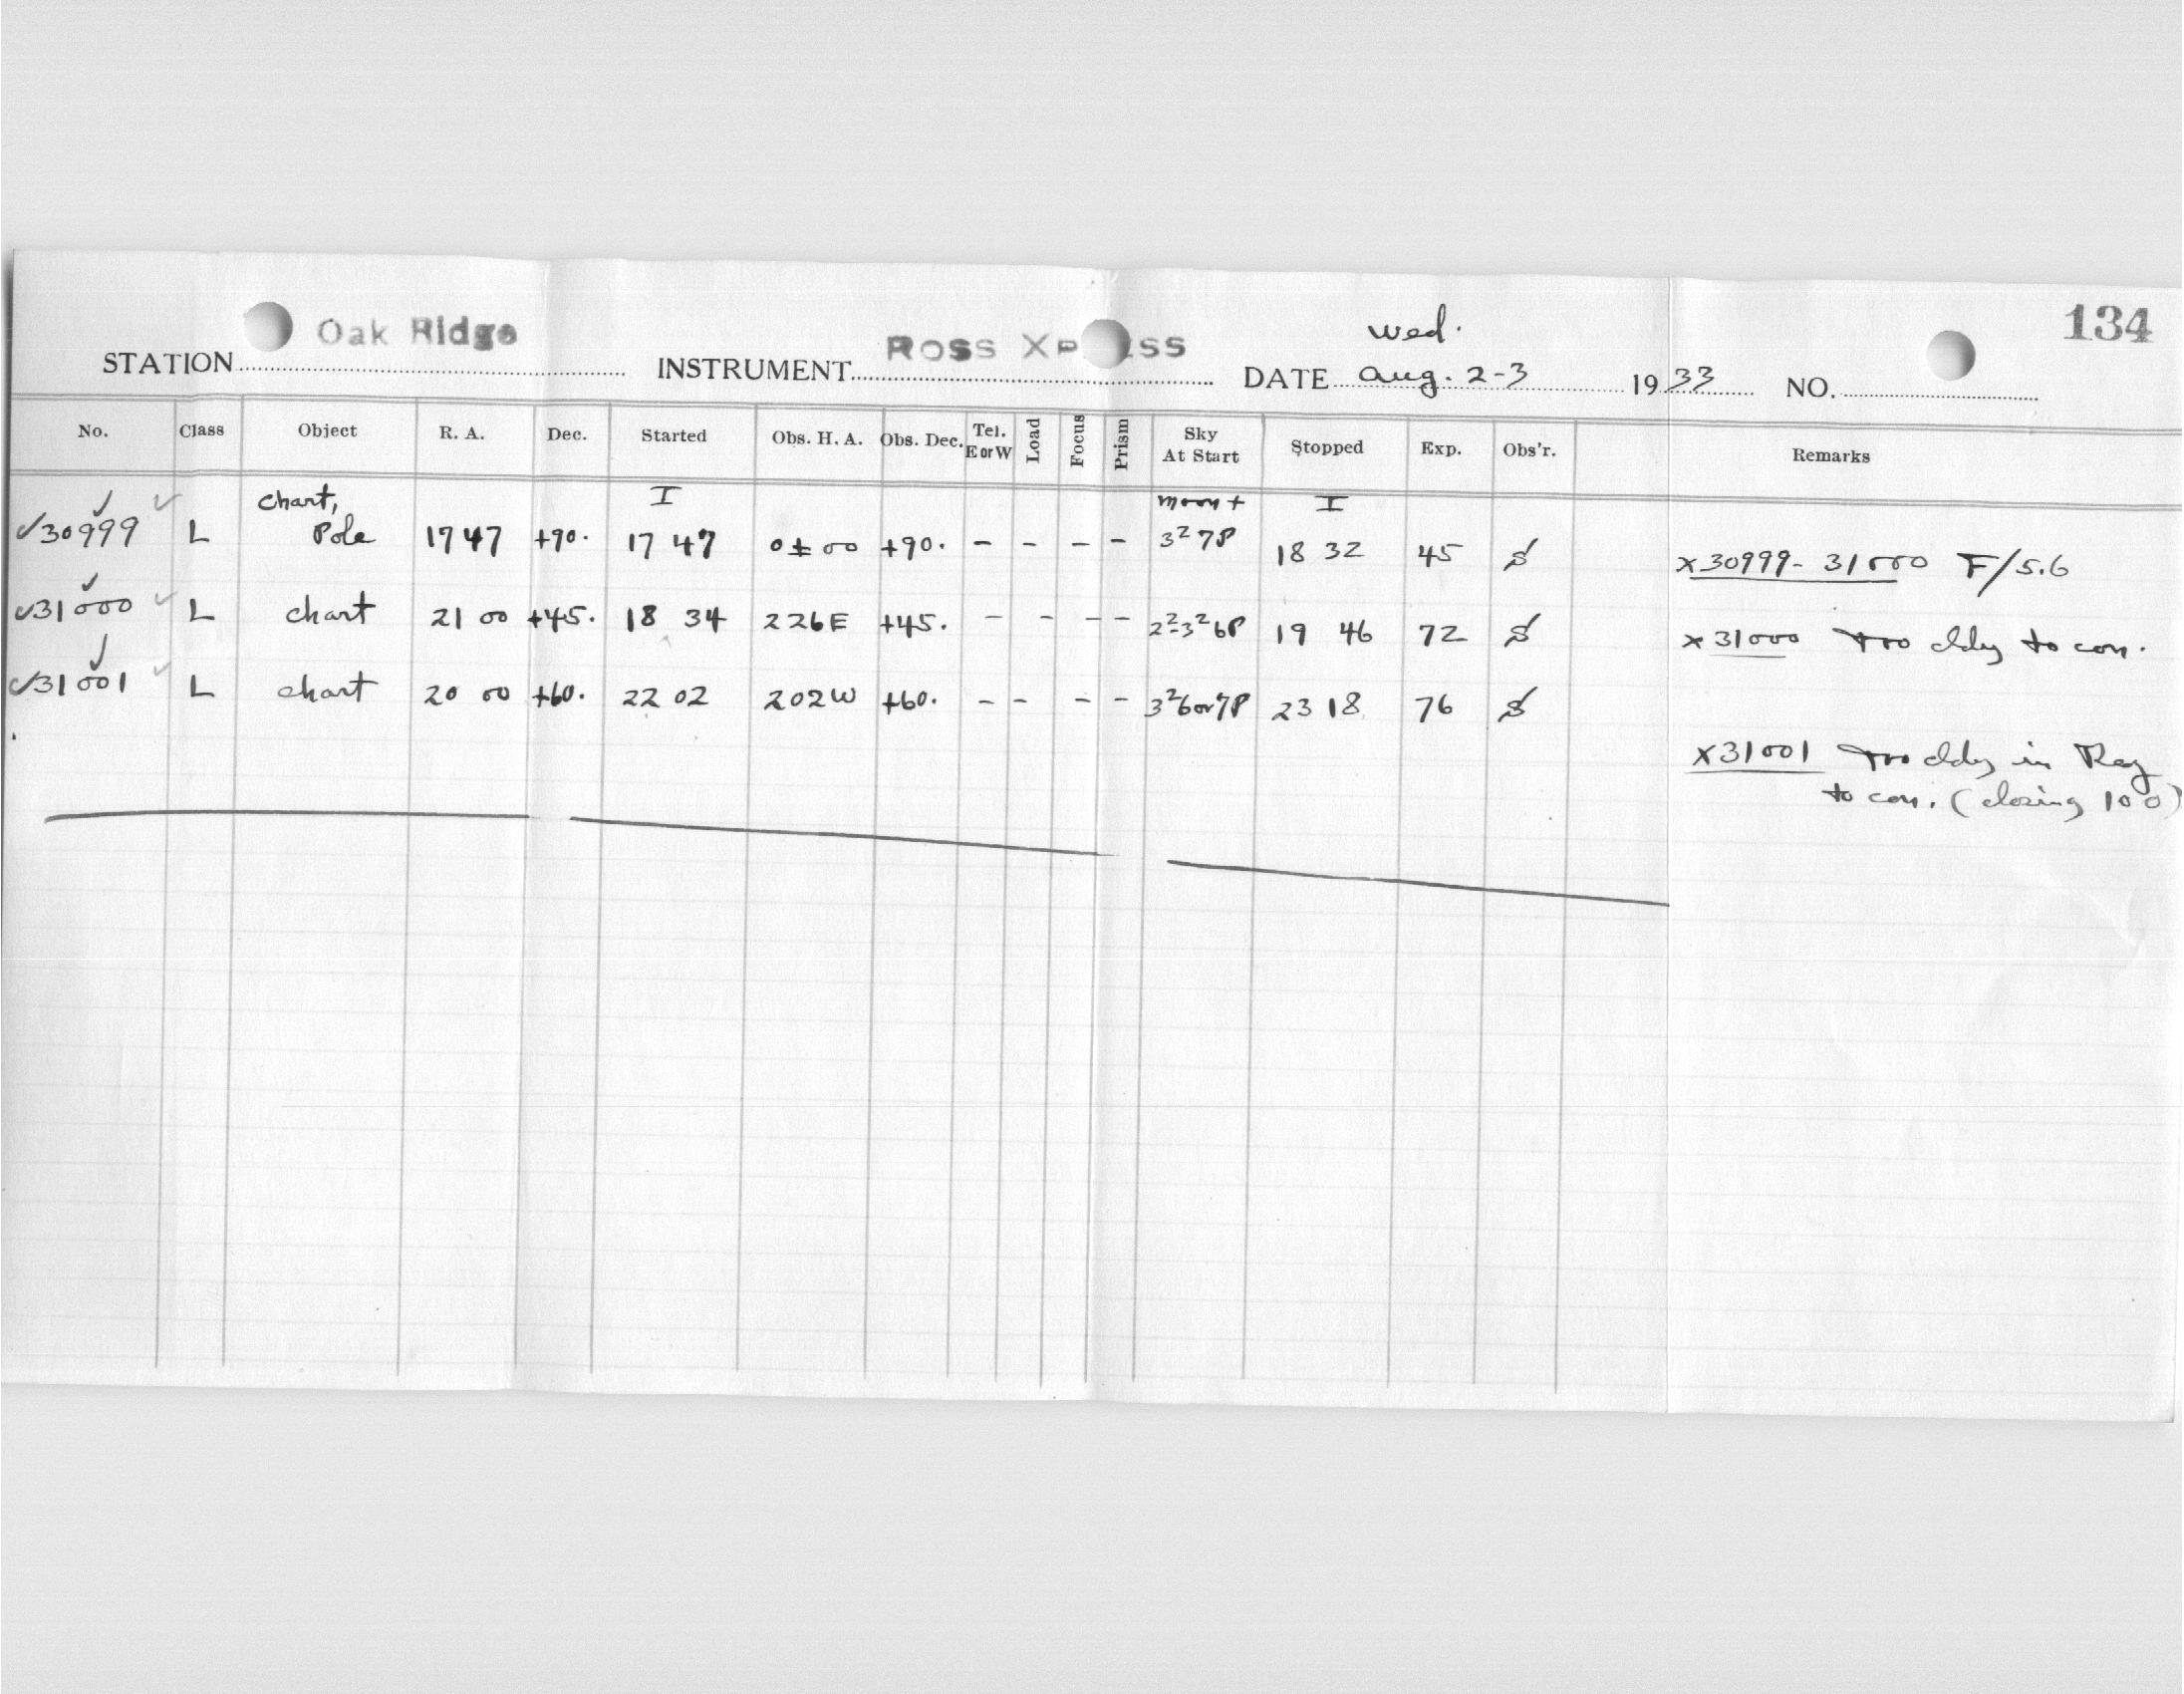 134
STATION Oak Ridge INSTRUMENT Ross Xp ss DATE Wed. Aug. 2-3 1933 NO.
No. Class Object R. A. Dec. Started Obs. H. A. Obs. Dec. Tel. E or W Load Focus Prism Sky At Start Stopped Exp. Obs'r. Remarks
chart, I moon + I
30999 L Pole 17 47 +90. 17 47 0 ± 00 +90. - - - - 3² 7P 18 32 45 S
x30999- 31000 F/5.6
31000 L chart 21 00 +45. 18 34 2 26E +45. - - - - 2²-3² 6P 19 46 72 S
x31000 Too cldy to con.
31001 L chart 20 00 +60. 22 02 2 02W +60. - - - - 3² 6 or 7P 23 18 76 S
x31001 Too cldy in Reg
to con. (closing 100)